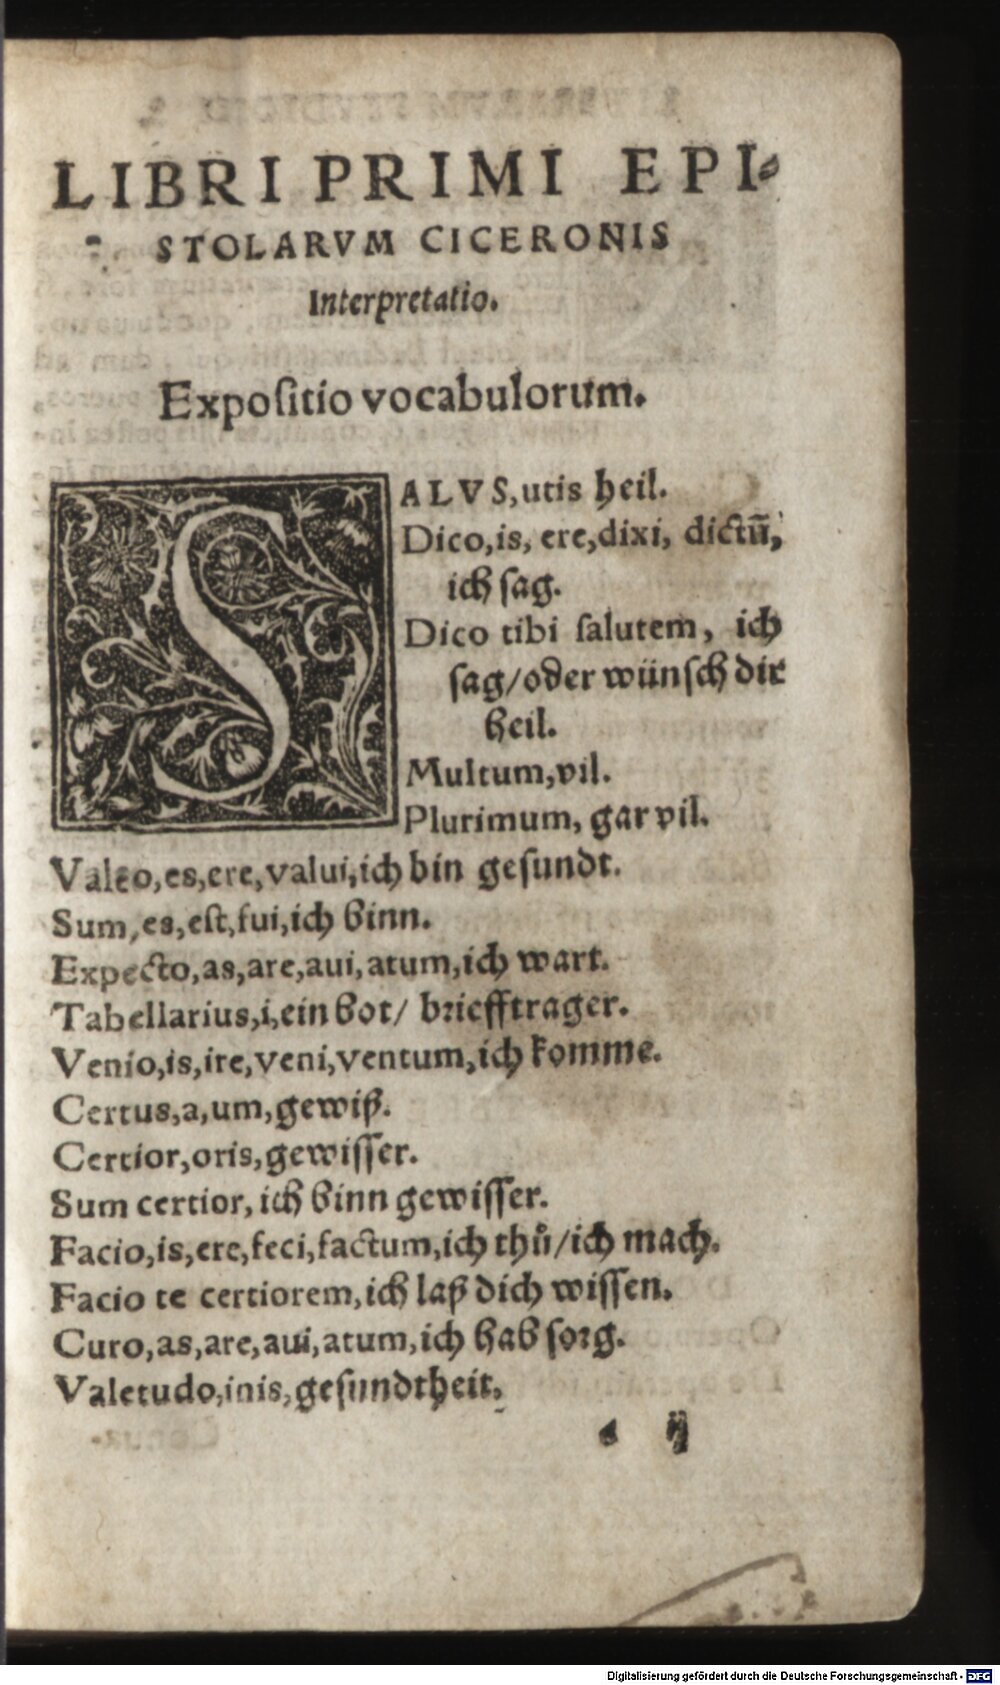 LIBRI PRIMI EPI-
STOLARVM CICERONIS
Interpretatio.
Expoſitio vocabulorum.
SALVS, utis heil.
Dico, is, ere, dixi, dictū,
ich ſag.
Dico tibi ſalutem, ich
ſag/oder wünſch dir
heil.
Multum, vil.
Plurimum, gar vil.
Valeo, es, ere, valui, ich bin geſundt.
Sum, es, eſt, fui, ich binn.
Expecto, as, are, aui, atum, ich wart.
Tabellarius, i, ein bot/ briefftrager.
Venio, is, ire, veni, ventum, ich komme.
Certus, a, um, gewiß.
Certior, oris, gewiſſer.
Sum certior, ich binn gewiſſer.
Facio, is, ere, feci, factum, ich thuͦ/ich mach.
Facio te certiorem, ich laß dich wiſſen.
Curo, as, are, aui, atum, ich hab ſorg.
Valetudo, inis, geſundtheit.
ij
Digitalisierung gefördert durch die Deutsche Forschungsgemeinschaft - DFG